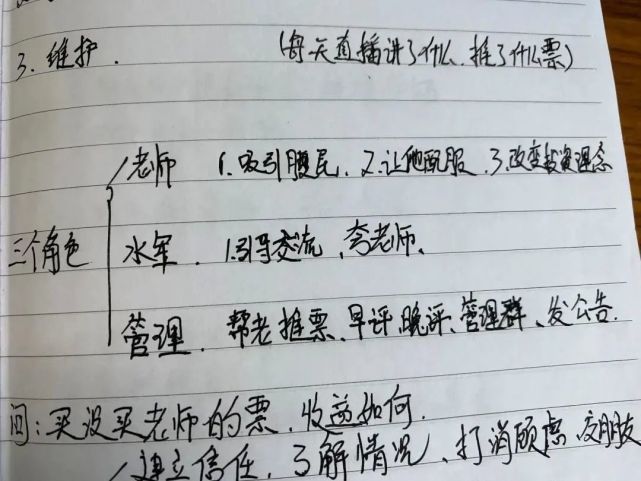 3、维护. (每天直播讲了什么、推了什么票)
老师 1.吸引股民、2.让他配服、3.改变投资理念
三个角色 水军. 1.引导交流、夸老师、
管理. 帮老推票、早评、晚评、管理群、发公告.
问:买没买老师的票、收益如何.
建立信任、了解情况、打消顾虑、交朋友